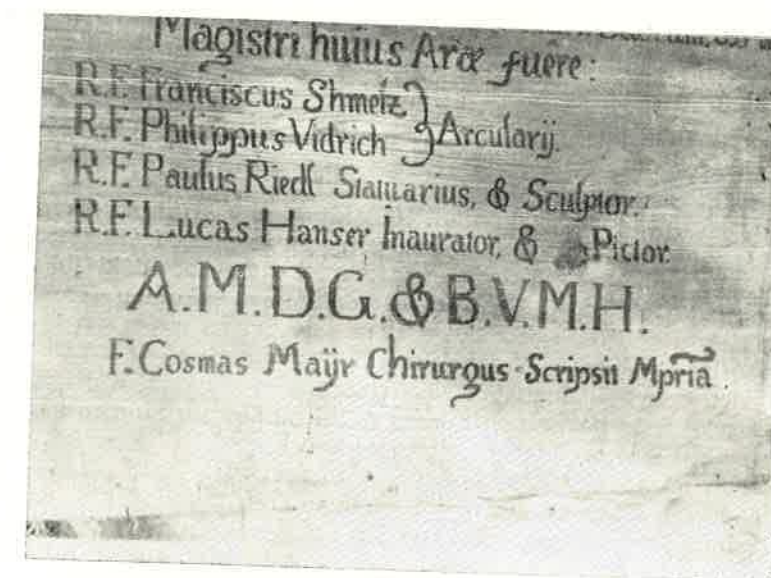 Magistri huius Aræ fuêre:
R.F. Franciscus Shmeiz } Arcularij.
R.F. Philippus Vidrich
R.F. Paulus Riedl Statuarius, & Sculptor.
R.F. Lucas Hanser Inaurator, & Pictor.
A.M.D.G. & B.V.M.H.
F. Cosmas Maÿr Chirurgus Scripsit Mpria.